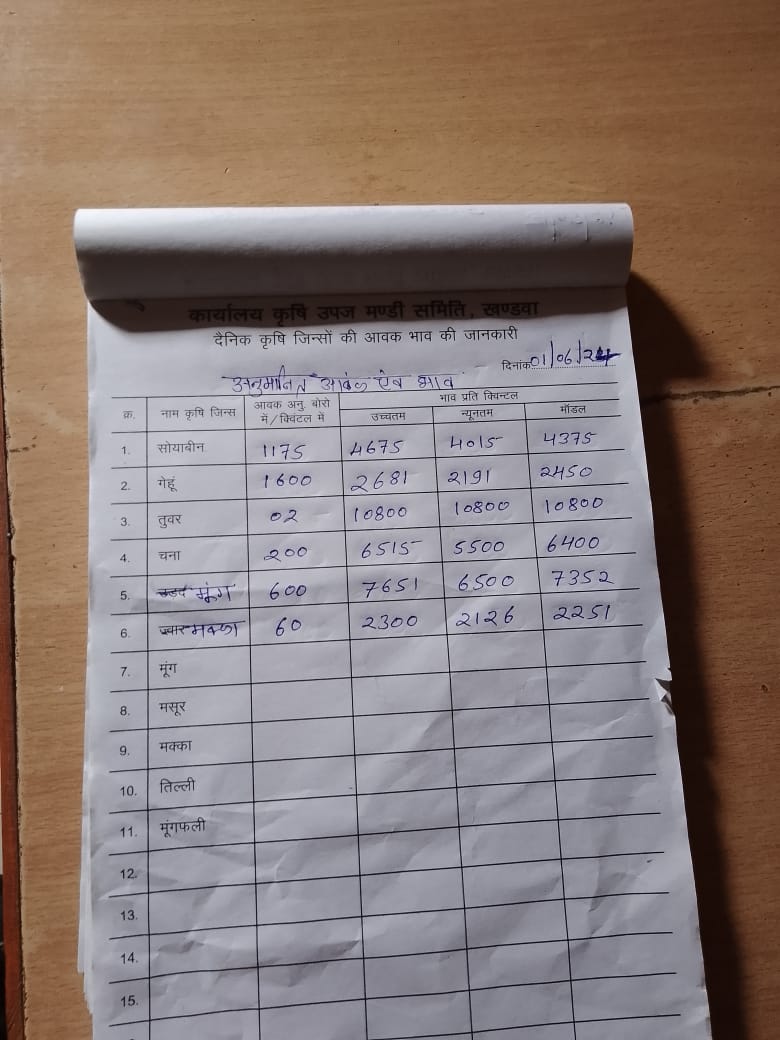 कार्यालय कृषि उपज मण्डी समिति, खण्डवा
दैनिक कृषि जिन्सों की आवक भाव की जानकारी
दिनांक 01/06/24
अनुमानित आवक ऐव भाव
क्र. नाम कृषि जिन्स आवक अनु. बोरो में/क्विंटल में भाव प्रति क्विन्टल
उच्चतम न्यूनतम मॉडल
1. सोयाबीन 1175 4675 4015 4375
2. गेहूं 1600 2681 2191 2450
3. तुवर 02 10800 10800 10800
4. चना 200 6515 5500 6400
5. उडद मूंग 600 7651 6500 7352
6. ज्वार मक्का 60 2300 2126 2251
7. मूंग
8. मसूर
9. मक्का
10. तिल्ली
11. मूंगफली
12.
13.
14.
15.